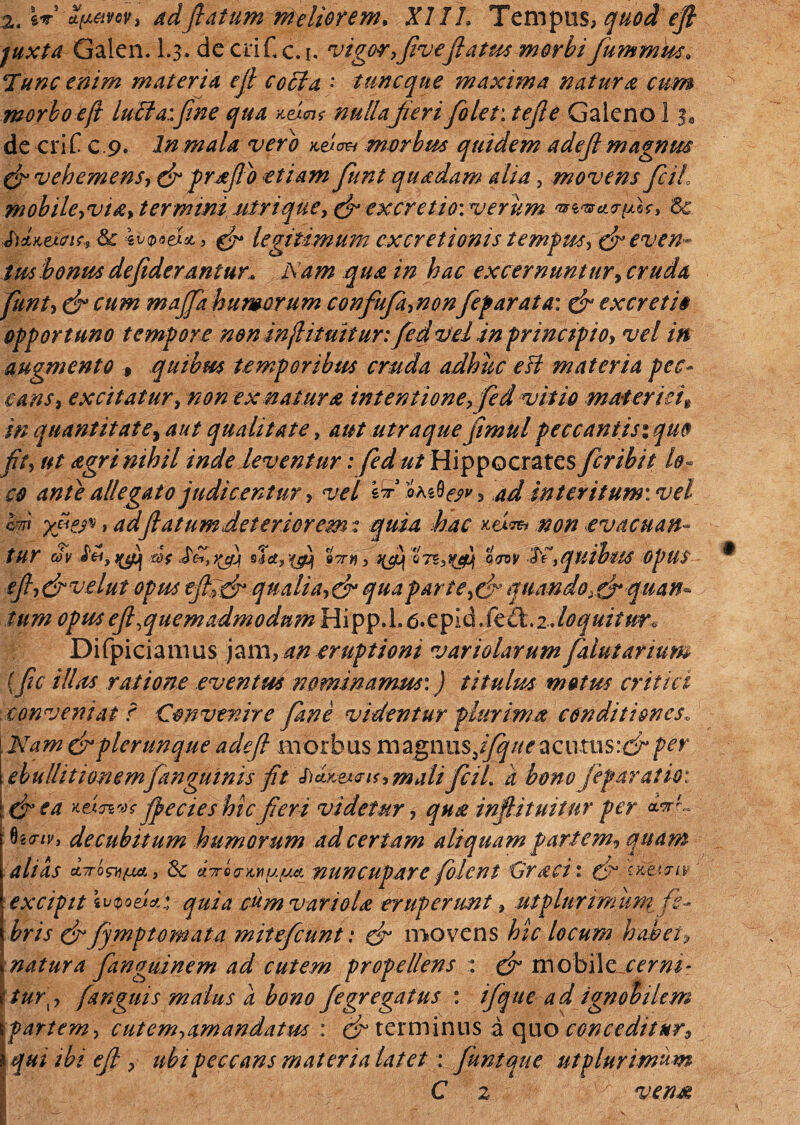 2. ἐπ' ἄμεινον, ad ſtatum meliorem. XIII. Tempus, quod eſt
juxta Galen. l.3. de criſ. c. 1. vigor, ſive ſtatus morbi ſummus.
Tunc enim materia eſt cocta: tuncque maxima naturæ cum
morbo eſt lucta: ſine qua κρίσις nulla fieri ſolet: teſte Galeno l 3.
de criſ c.9. In mala vero κρίσει morbus quidem adeſt magnus
& vehemens, & præſto etiam ſunt quædam alia, movens ſcil.
mobile, via, termini utrique, & excretio: verum πεπασμὸς, &
διάκρισις, & ἐυφορία, & legitimum excretionis tempus, & even-
tus bonus deſiderantur. Nam quæ in hac excernuntur, cruda
ſunt, & cum maſſa humorum confuſa, non ſeparata: & excretio
opportuno tempore non inſtituitur: ſed vel in principio, vel in
augmento, quibus temporibus cruda adhuc eſt materia pec-
cans, excitatur, non ex naturæ intentione, ſed vitio materiei,
in quantitate, aut qualitate, aut utraque ſimul peccantis: quo
fit, ut ægri nihil inde leventur: ſed ut Hippocrates ſcribit lo-
co ante allegato judicentur, vel ἐπ' ὄλεθρον, ad interitum: vel
ἐπὶ χεῖρον, ad ſtatum deteriorem: quia hac κρίσει non evacuan-
tur ὧν δεῖ, καὶ ὡς δεῖ, καὶ οἷα, καὶ ὅπη, καὶ ὅτε, καὶ ὅσον δεῖ, quibus opus
eſt, & velut opus eſt, & qualia, & qua parte, & quando, & quan-
tum opus eſt, quemadmodum Hipp.l.6.epid.ſect.2. loquitur.
Diſpiciamus jam, an eruptioni variolarum ſalutarium
(ſic illas ratione eventus nominamus:) titulus motus critici
conveniat? Convenire ſane videntur plurimæ conditiones.
Nam & plerunque adeſt morbus magnus, iſque acutus: & per
ebullitionem ſanguinis fit διάκρισις, mali ſcil. à bono ſeparatio:
& ea κρίσεως ſpecies hîc fieri videtur, quæ inſtituitur per ἀπό-
θεσιν, decubitum humorum ad certam aliquam partem, quam
aliàs ἀπόστημα, & ἀπόσκημμα nuncupare ſolent Græci: & κρίσιν
excipit ἐυφορία: quia cùm variolæ eruperunt, utplurimùm fe-
bris & ſymptomata miteſcunt: & movens hîc locum habet,
natura ſanguinem ad cutem propellens: & mobile cerni-
tur, ſanguis malus à bono ſegregatus: iſque ad ignobilem
partem, cutem, amandatus: & terminus à quo conceditur,
qui ibi eſt, ubi peccans materia latet: ſuntque utplurimùm
C 2 venæ